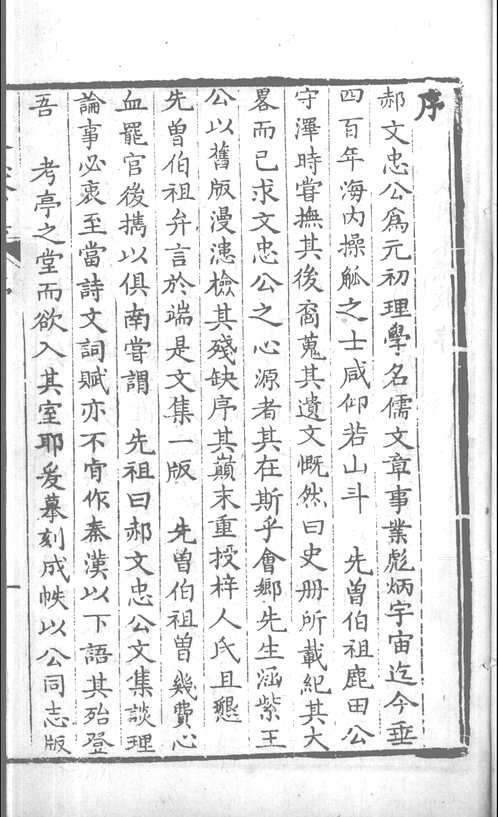 序
郝文忠公爲元初理學名儒文章事業彪炳宇宙迄今垂
四百年海内操觚之士咸仰若山斗　先曽伯祖鹿田公
守澤時嘗撫其後裔蒐其遺文慨然曰史册所載紀其大
畧而已求文忠公之心源者其在斯乎會鄉先生涵紫王
公以舊版漫漶檢其殘缺序其巔末重授梓人氏且懇
先曽伯祖弁言於端是文集一版　先曽伯祖曽幾費心
血罷官後攜以俱南嘗謂　先祖曰郝文忠公文集談理
論事必衷至當詩文詞賦亦不肯作秦漢以下語其殆登
吾　考亭之堂而欲入其室耶爰摹刻成帙以公同志版